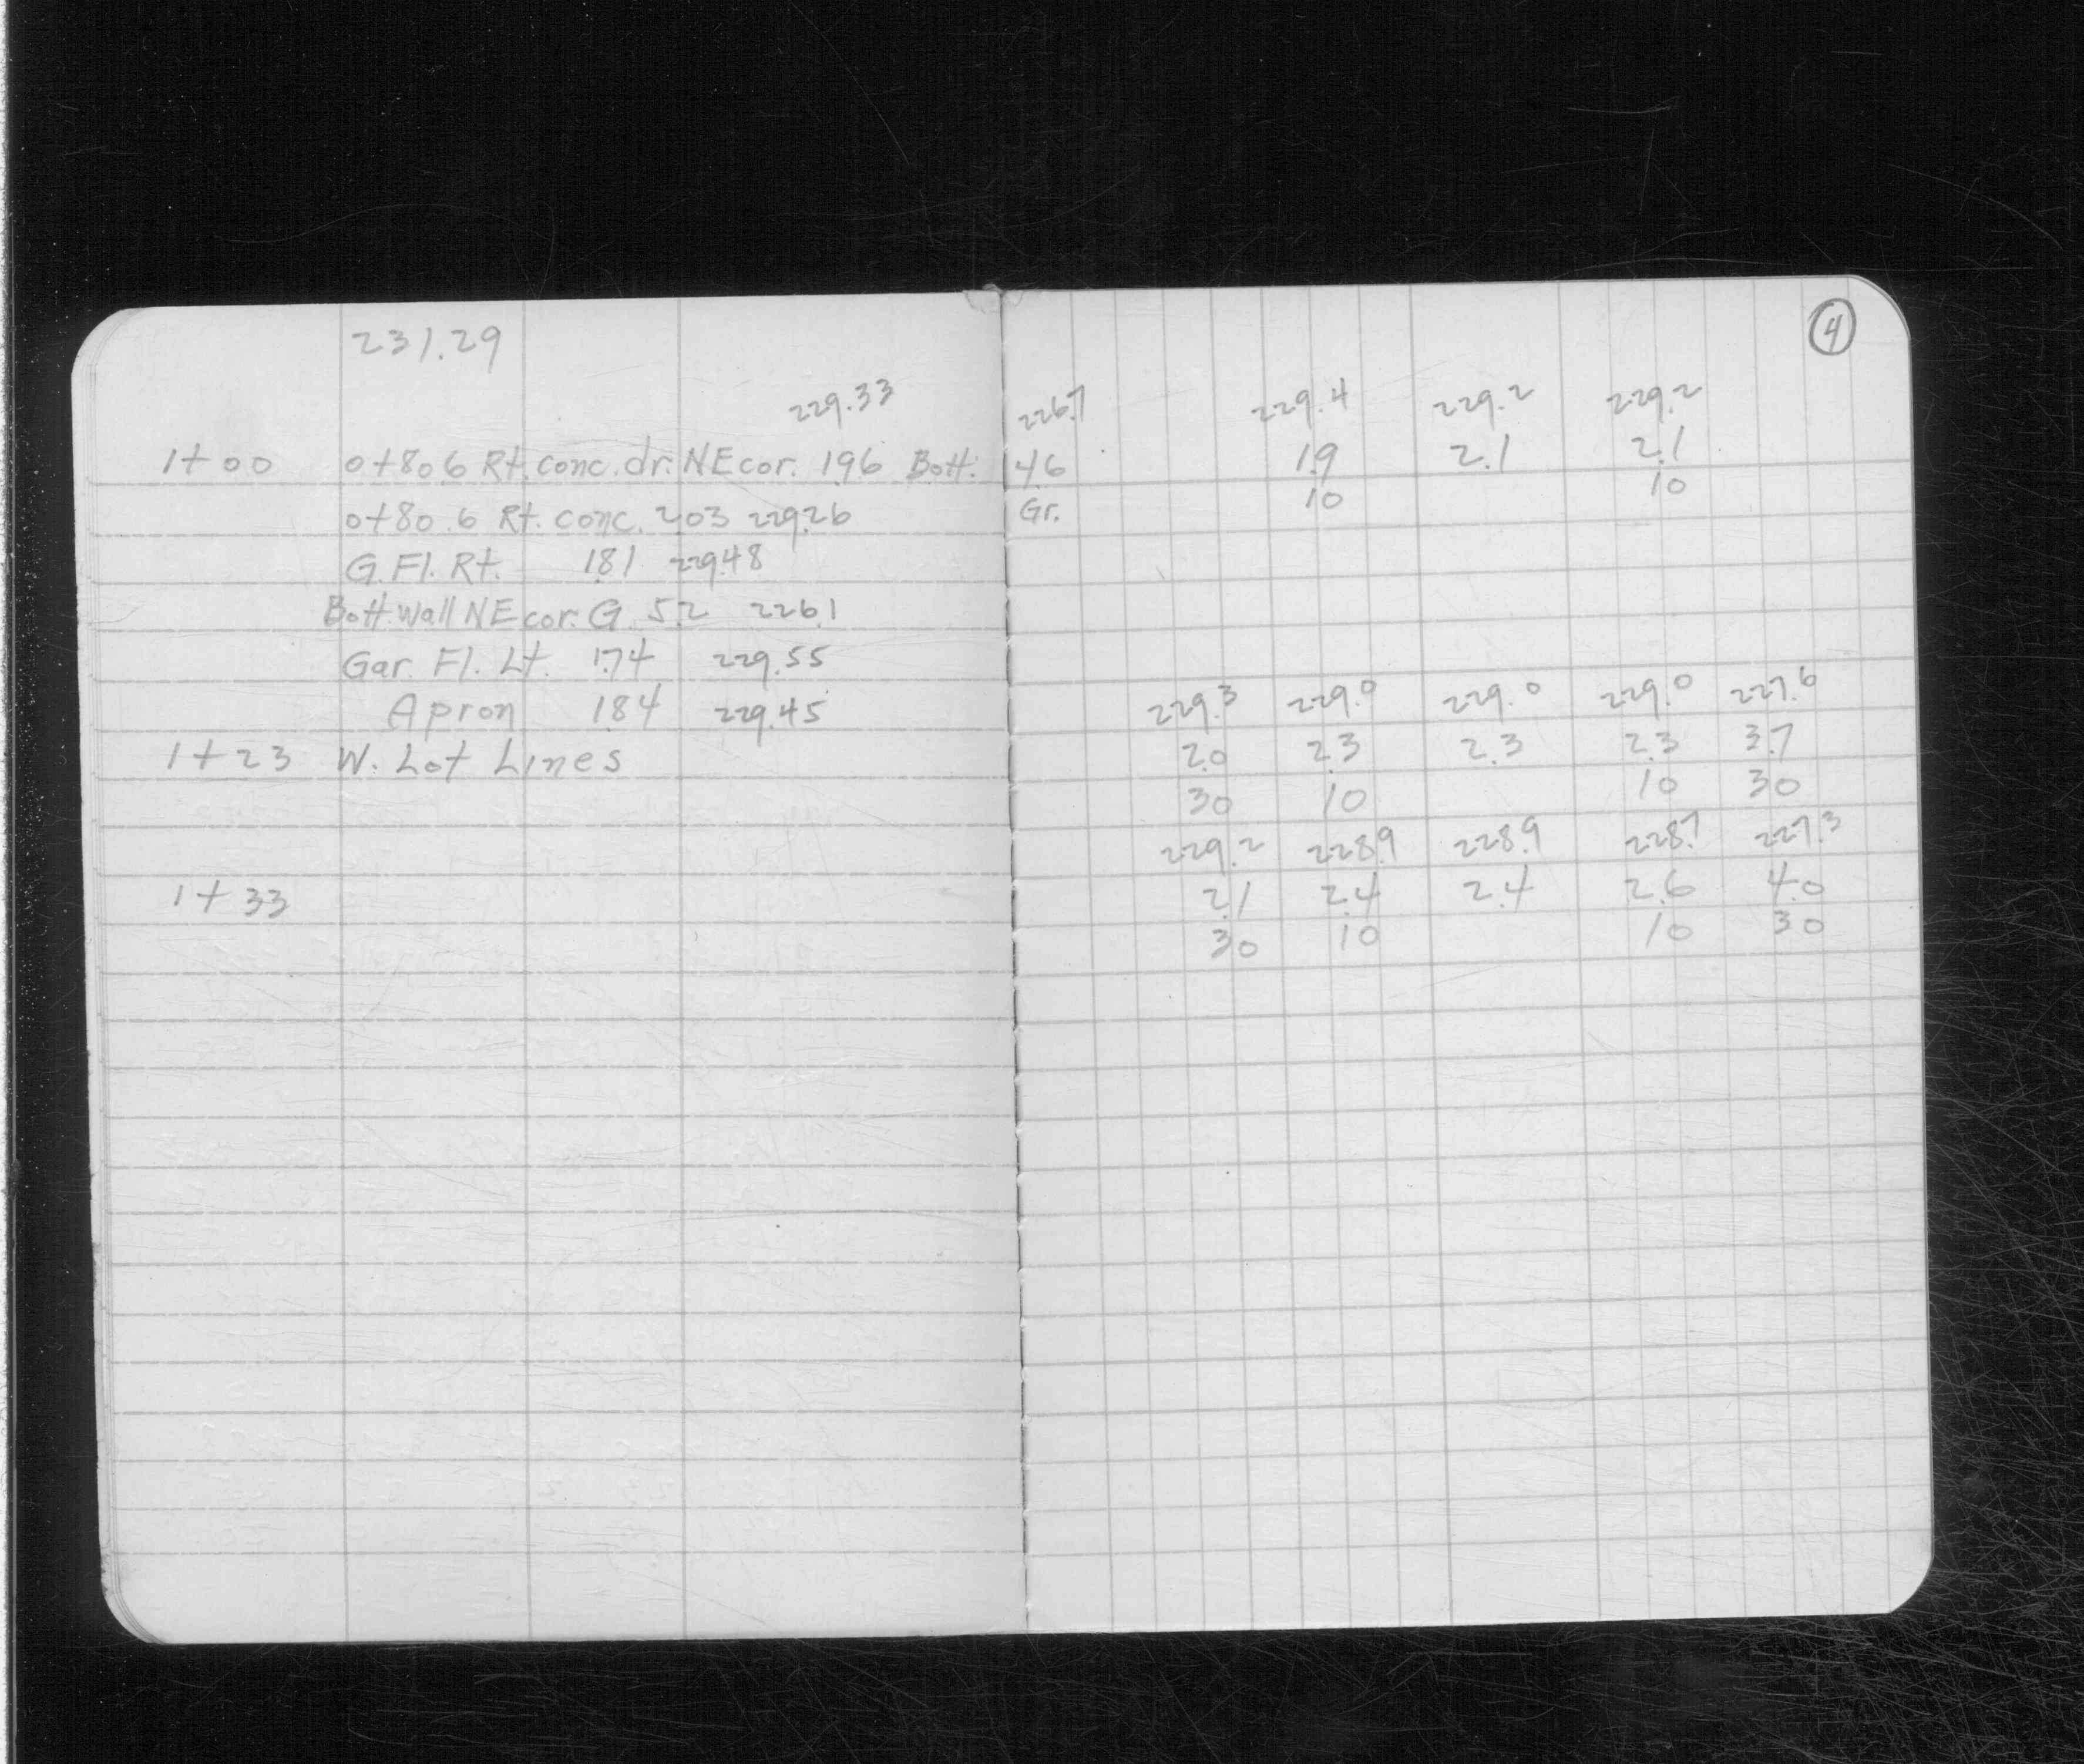 231.29
4
229.33 226.7 229.4 229.2 229.2
1+00 0+80.6 Rt. conc. dr. NE cor. 1.96 Bott. 4.6 1.9 2.1 2.1
0+80.6 Rt. conc. 2.03 229.26 Gr. 10 10
G. Fl. Rt. 1.81 229.48
Bott. Wall NE cor. G. 5.2 226.1
Gar. Fl. Lt. 1.74 229.55
229.3 229.0 229.0 229.0 227.6
Apron 1.84 229.45
1+23 W. Lot Lines 2.0 2.3 2.3 2.3 3.7
30 10 10 30
229.2 228.9 228.9 228.7 227.3
1+33 2.1 2.4 2.4 2.6 4.0
30 10 10 30